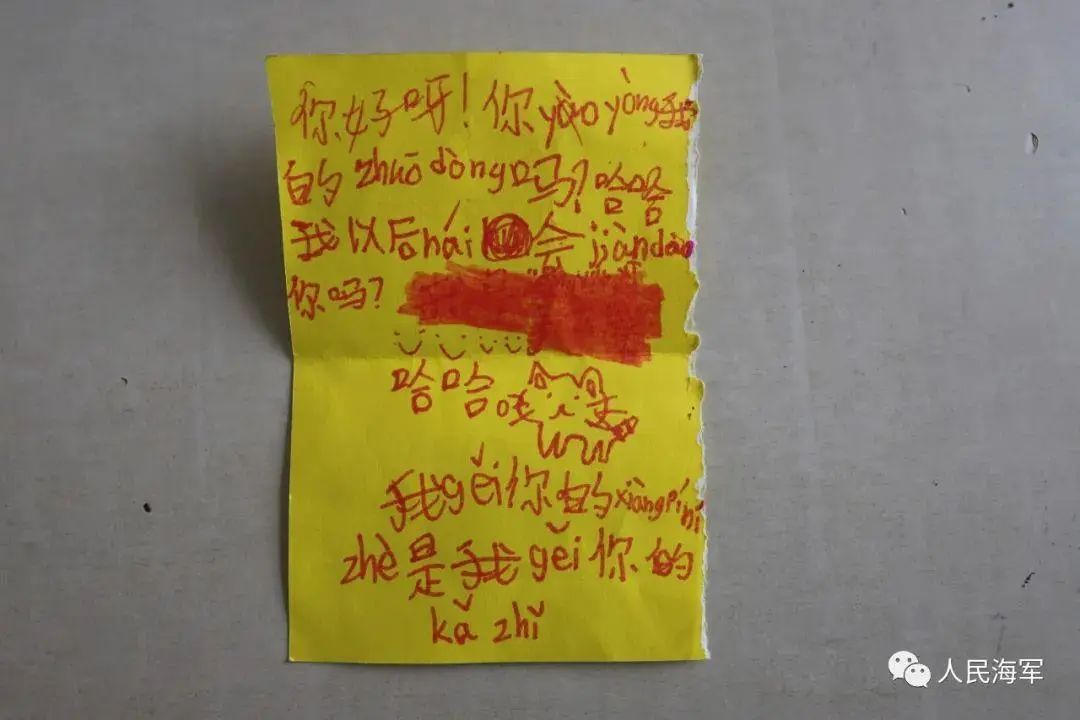 你好呀！你yào yòng我
的zhuō dòng吗？哈哈
我以后hái会jiàndào
你吗？
哈哈
我gěi你的xiàngpíní
zhè是我gěi你的
kǎ zhǐ
人民海军